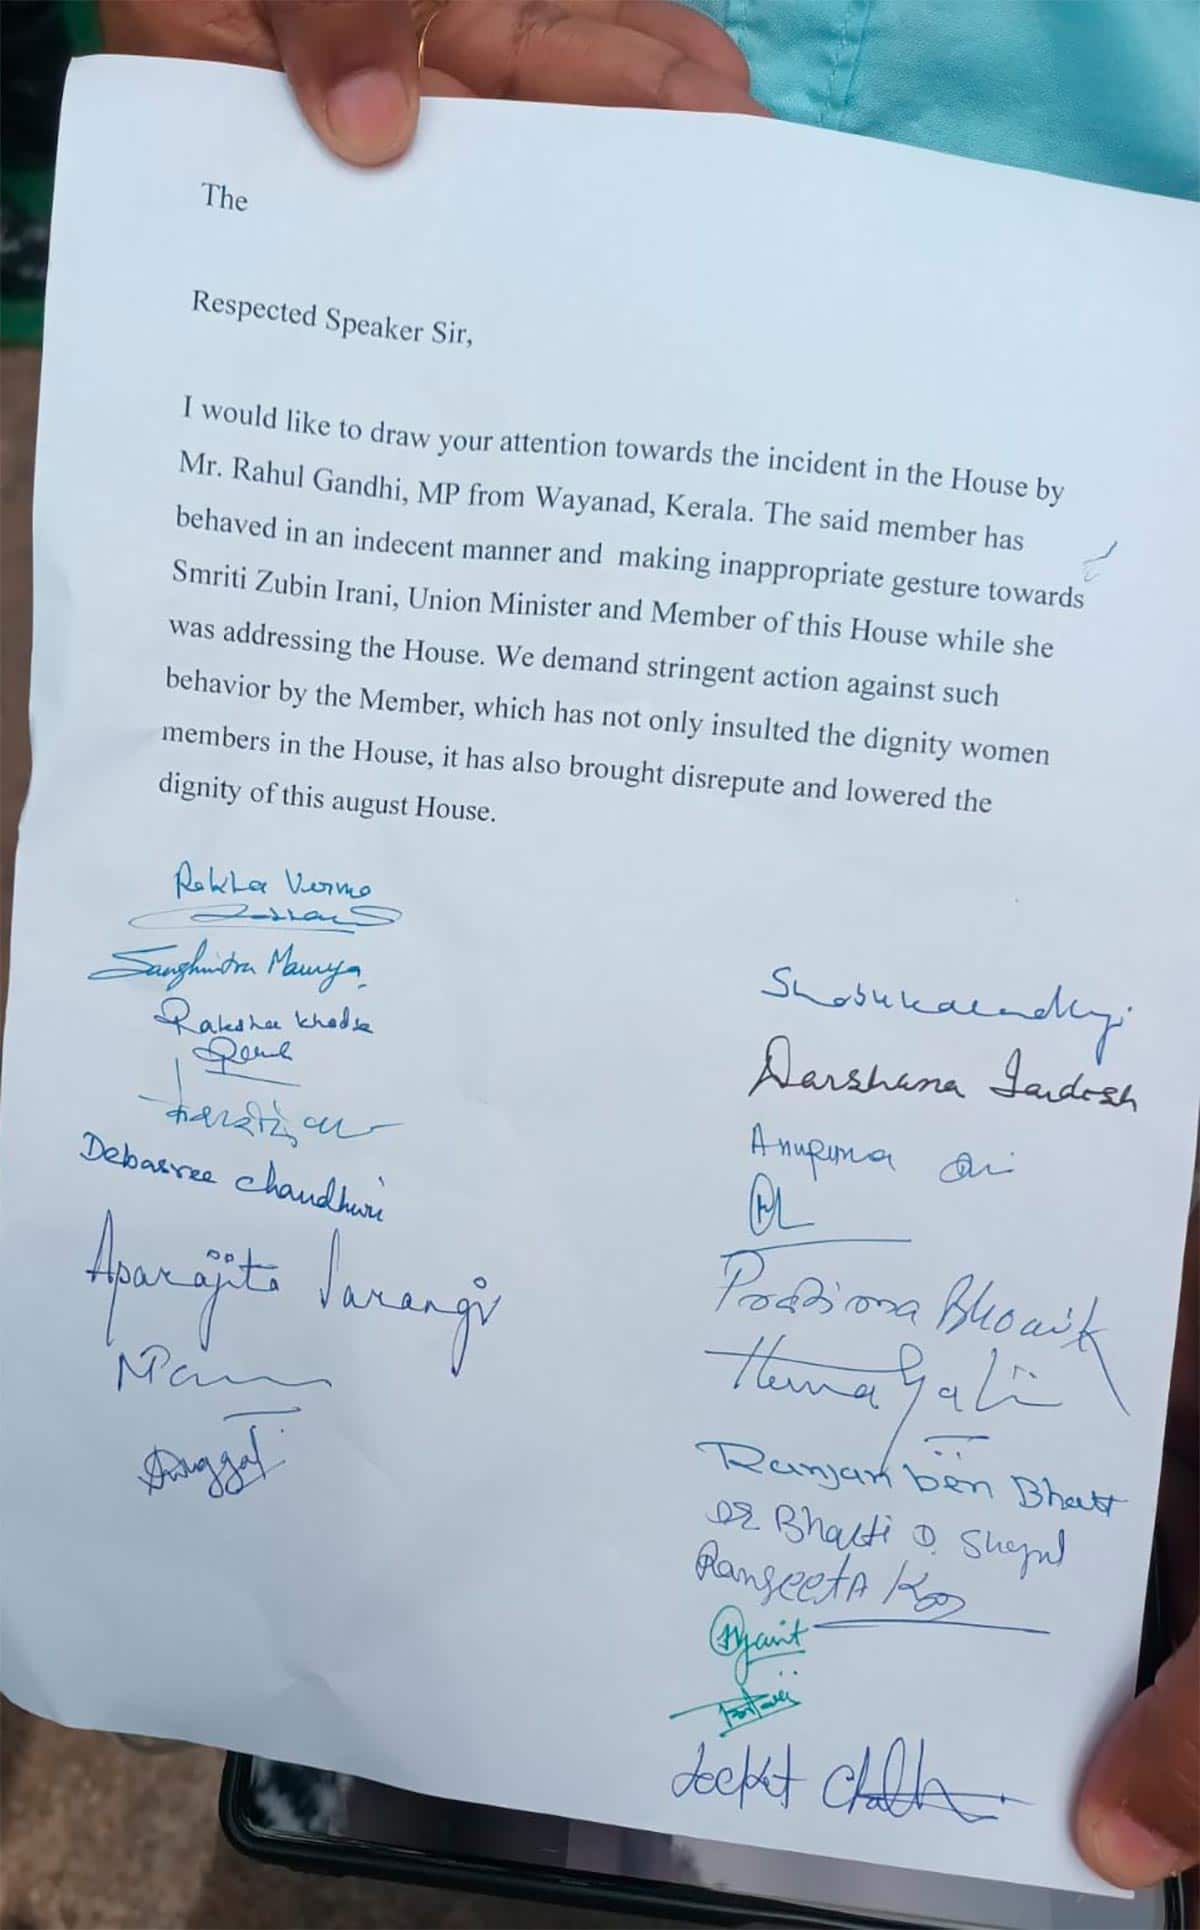 The
Respected Speaker Sir,
I would like to draw your attention towards the incident in the House by
Mr. Rahul Gandhi, MP from Wayanad, Kerala. The said member has
behaved in an indecent manner and making inappropriate gesture towards
Smriti Zubin Irani, Union Minister and Member of this House while she
was addressing the House. We demand stringent action against such
behavior by the Member, which has not only insulted the dignity women
members in the House, it has also brought disrepute and lowered the
dignity of this august House.
Rekha Verma
Sanghmitra Maurya
Raksha Khadse
Debasree Chaudhuri
Aparajita Sarangi
Darshana Jardosh
Anupriya
Pratima Bhoumik
Ranjanben Bhatt
Dr Bharti D. Shyal
Rangeeta
Locket